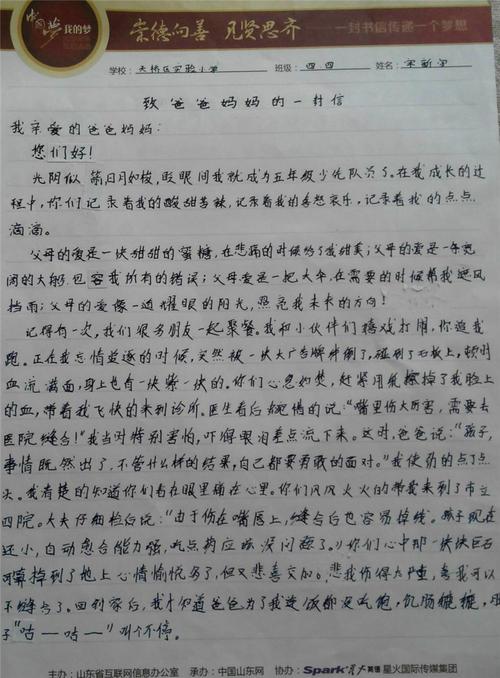 中国梦 我的梦
崇德向善 见贤思齐
一封书信传递一个梦想
学校：天桥区实验小学 班级：四四 姓名：宋新宇
致爸爸妈妈的一封信
我亲爱的爸爸妈妈：
您们好！
光阴似箭,日月如梭，眨眼间我就成为五年级少先队员了。在我成长的过
程中，你们记录着我的酸甜苦辣，记录着我的喜怒哀乐，记录着我的点点
滴滴。
父母的爱是一块甜甜的蜜糖，在悲痛的时候给了我甜美；父母的爱是一条宽
阔的大船,包容我所有的错误；父母爱是一把大伞,在需要的时候帮我遮风
挡雨；父母的爱像一边耀眼的阳光，照亮我未来的方向！
记得有一次，我们很多朋友一起聚餐。我和小伙伴们嬉戏打闹，你追我
跑。正在我忘情追逐的时候，突然被一块大广告牌绊倒了，碰到了石板上，顿时
血流满面，身上也有一块紫一块的。你们心急如焚，赶紧用纸擦掉了我脸上
的血，带着我飞快的来到诊所。医生看后惋惜的说：“嘴里伤太厉害，需要去
医院缝合！”我当时特别害怕，吓得眼泪差点流下来。这时，爸爸说：“孩子，
事情既然出了，不管什么样的结果，自己都要勇敢的面对。”我使劲的点了点
头。我清楚的知道你们看在眼里痛在心里。你们风风火火的带我来到了市立
四院。大夫仔细检白说：“由于伤在嘴唇上，缝合白也容易掉线。孩子现在
还小，自动愈合能力强，吃点药应该没问题了。”你们心中那一块块巨石
可算掉到了地上心情愉悦多了，但又悲喜交加。悲我伤得太严重，喜我可以
不缝合了。回到家后，我才知道爸爸为了我连饭都没吃饱，饥肠辘辘，肚
子“咕—咕—”叫个不停。
主办：山东省互联网信息办公室 承办：中国山东网 协办：Spark星火英语 星火国际传媒集团